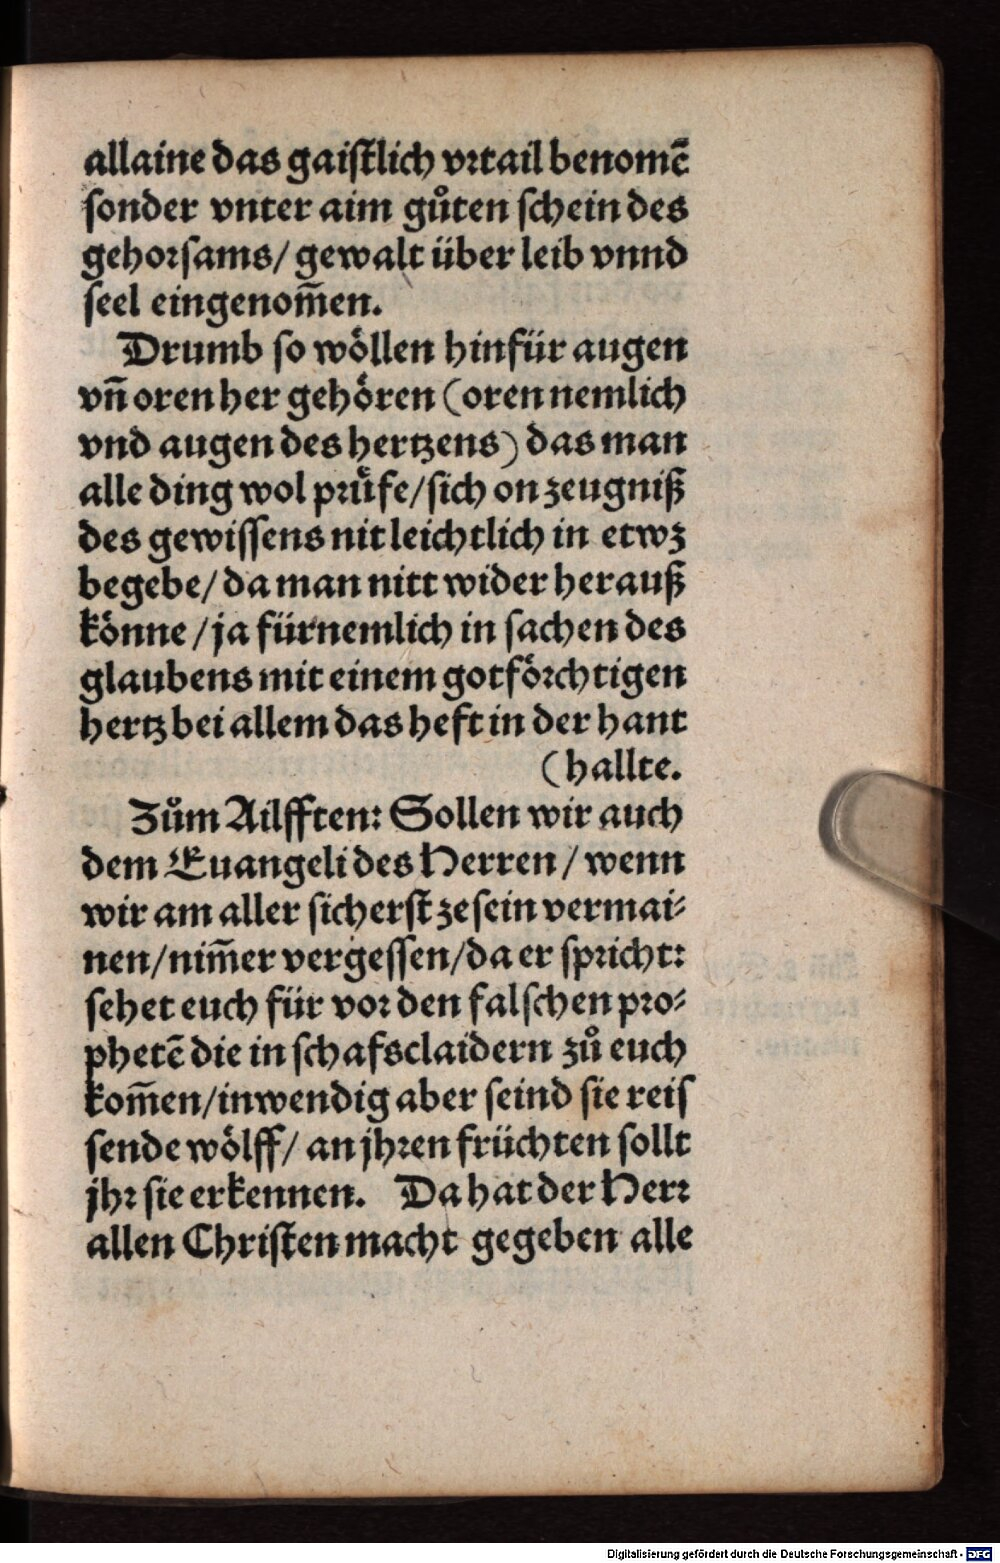 allaine das gaiſtlich vꝛtail benomẽ
ſonder vnter aim gůten ſchein des
gehoꝛſams/ gewalt über leib vnnd
ſeel eingenom̃en.
Drumb ſo wöllen hinfür augen
vñ oren her gehören (oren nemlich
vnd augen des hertzens) das man
alle ding wol pꝛuͤfe/ſich on zeugniß
des gewiſſens nit leichtlich in etwz
begebe/ da man nitt wider herauß
könne /ja fürnemlich in ſachen des
glaubens mit einem gotföꝛchtigen
hertz bei allem das heft in der hant
(hallte.
Zům Ailfften: Sollen wir auch
dem Euangeli des Herren / wenn
wir am aller ſicherſt ze ſein vermai⸗
nen/nim̃er vergeſſen/da er ſpꝛicht:
ſehet euch für voꝛ den falſchen pꝛo⸗
phetẽ die in ſchafsclaidern zů euch
kom̃en/inwendig aber ſeind ſie reiſ
ſende wölff/ an jhꝛen früchten ſollt
jhꝛ ſie erkennen. Da hat der Herꝛ
allen Chriſten macht gegeben alle
Digitalisierung gefördert durch die Deutsche Forschungsgemeinschaft - DFG